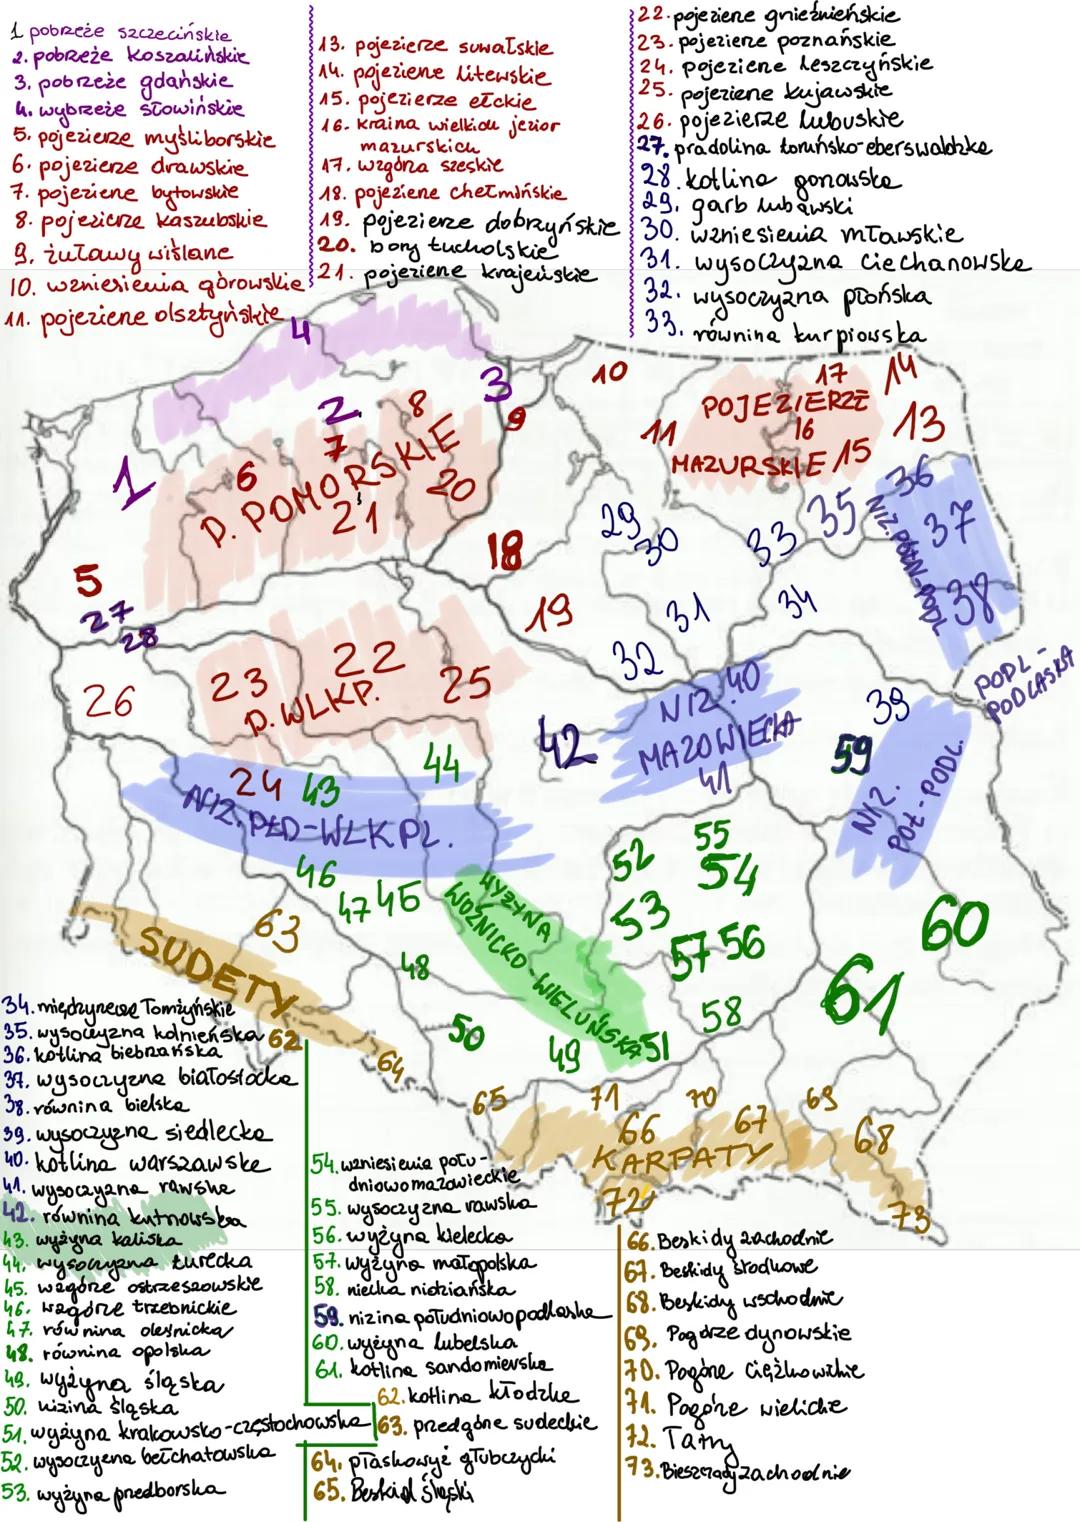 1 pobrzeże szczecińskie
2. pobrzeże koszalińskie
3. pobrzeże gdańskie
4. wybrzeże słowińskie
5. pojezierze myśliborskie
6. pojezierze drawskie
7. pojezierze bytowskie
8. pojezierze kaszubskie
9. żuławy wiślane
10. wzniesienia górowskie
11. pojezierze olsztyńskie
13. pojezierze suwalskie
14. pojezierze litewskie
15. pojezierze ełckie
16. kraina wielkich jezior
mazurskich
17. wzgórza szeskie
18. pojezierze chełmińskie
19. pojezierze dobrzyńskie
20. bory tucholskie
21. pojezierze krajeńskie
22. pojezierze gnieźnieńskie
23. pojezierze poznańskie
24. pojezierze leszczyńskie
25. pojezierze kujawskie
26. pojezierze lubuskie
27. pradolina toruńsko-eberswaldzka
28. kotlina gorzowska
29. garb lubawski
30. wzniesienia mławskie
31. wysoczyzna ciechanowska
32. wysoczyzna płońska
33. równina kurpiowska
4
10
17
14
3
2
8
9
POJEZIERZE
16
11
13
MAZURSKIE 15
7
1
6
D. POMORSKIE
20
21
36
35
37
NIZ. PÓŁN-PODL
29
30
33
18
5
38
34
27
28
19
31
32
22
23
25
26
D. WLKP.
PODL-
PODLASKA
NIZ. 40
MAZOWIECKA
41
39
42
59
44
24 43
NIZ. PŁD-WLKPL.
NIZ.
POŁ-PODL.
55
52
54
46
47 45
WYŻYNA
WOŹNICKO-WIELUŃSKA
53
60
63
57 56
SUDETY
48
61
58
50
49
51
62
64
65
71
70
69
66
67
68
KARPATY
72
73
34. międzyrzecze łomżyńskie
35. wysoczyzna kolneńska
36. kotlina biebrzańska
37. wysoczyzna białostocka
38. równina bielska
39. wysoczyzna siedlecka
40. kotlina warszawska
41. wysoczyzna rawska
42. równina kutnowska
43. wyżyna kaliska
44. wysoczyzna turecka
45. wzgórze ostrzeszowskie
46. wzgórze trzebnickie
47. równina oleśnicka
48. równina opolska
49. wyżyna śląska
50. nizina śląska
51. wyżyna krakowsko-częstochowska
52. wysoczyzna bełchatowska
53. wyżyna przedborska
54. wzniesienia połu-
dniowomazowieckie
55. wysoczyzna rawska
56. wyżyna kielecka
57. wyżyna małopolska
58. niecka nidziańska
59. nizina południowopodlaska
60. wyżyna lubelska
61. kotlina sandomierska
62. kotlina kłodzka
63. przedgórze sudeckie
64. płaskowyż głubczycki
65. Beskid śląski
66. Beskidy zachodnie
67. Beskidy środkowe
68. Beskidy wschodnie
69. Pogórze dynowskie
70. Pogórze Ciężkowickie
71. Pogórze wielickie
72. Tatry
73. Bieszczady zachodnie